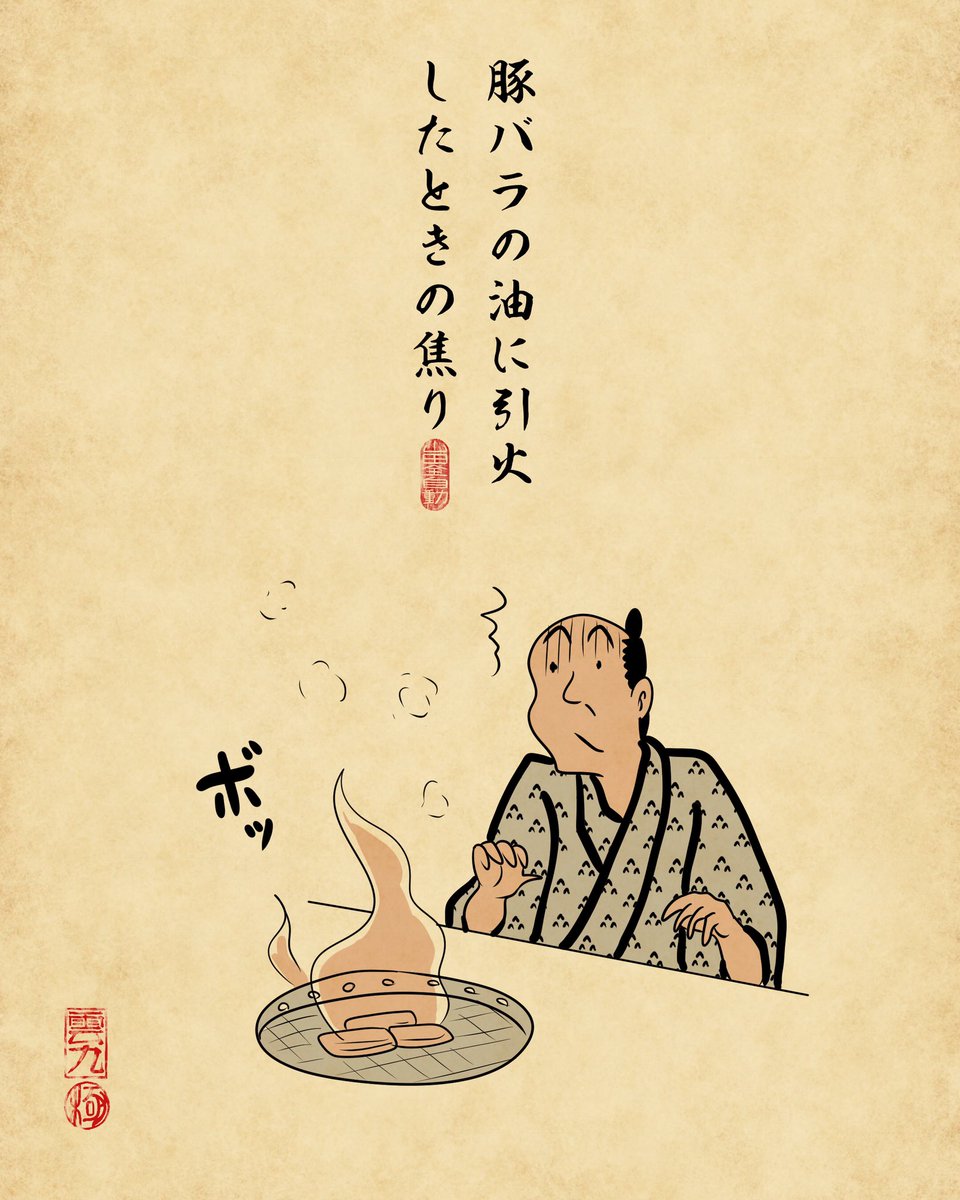 豚バラの油に引火
したときの焦り
ボッ